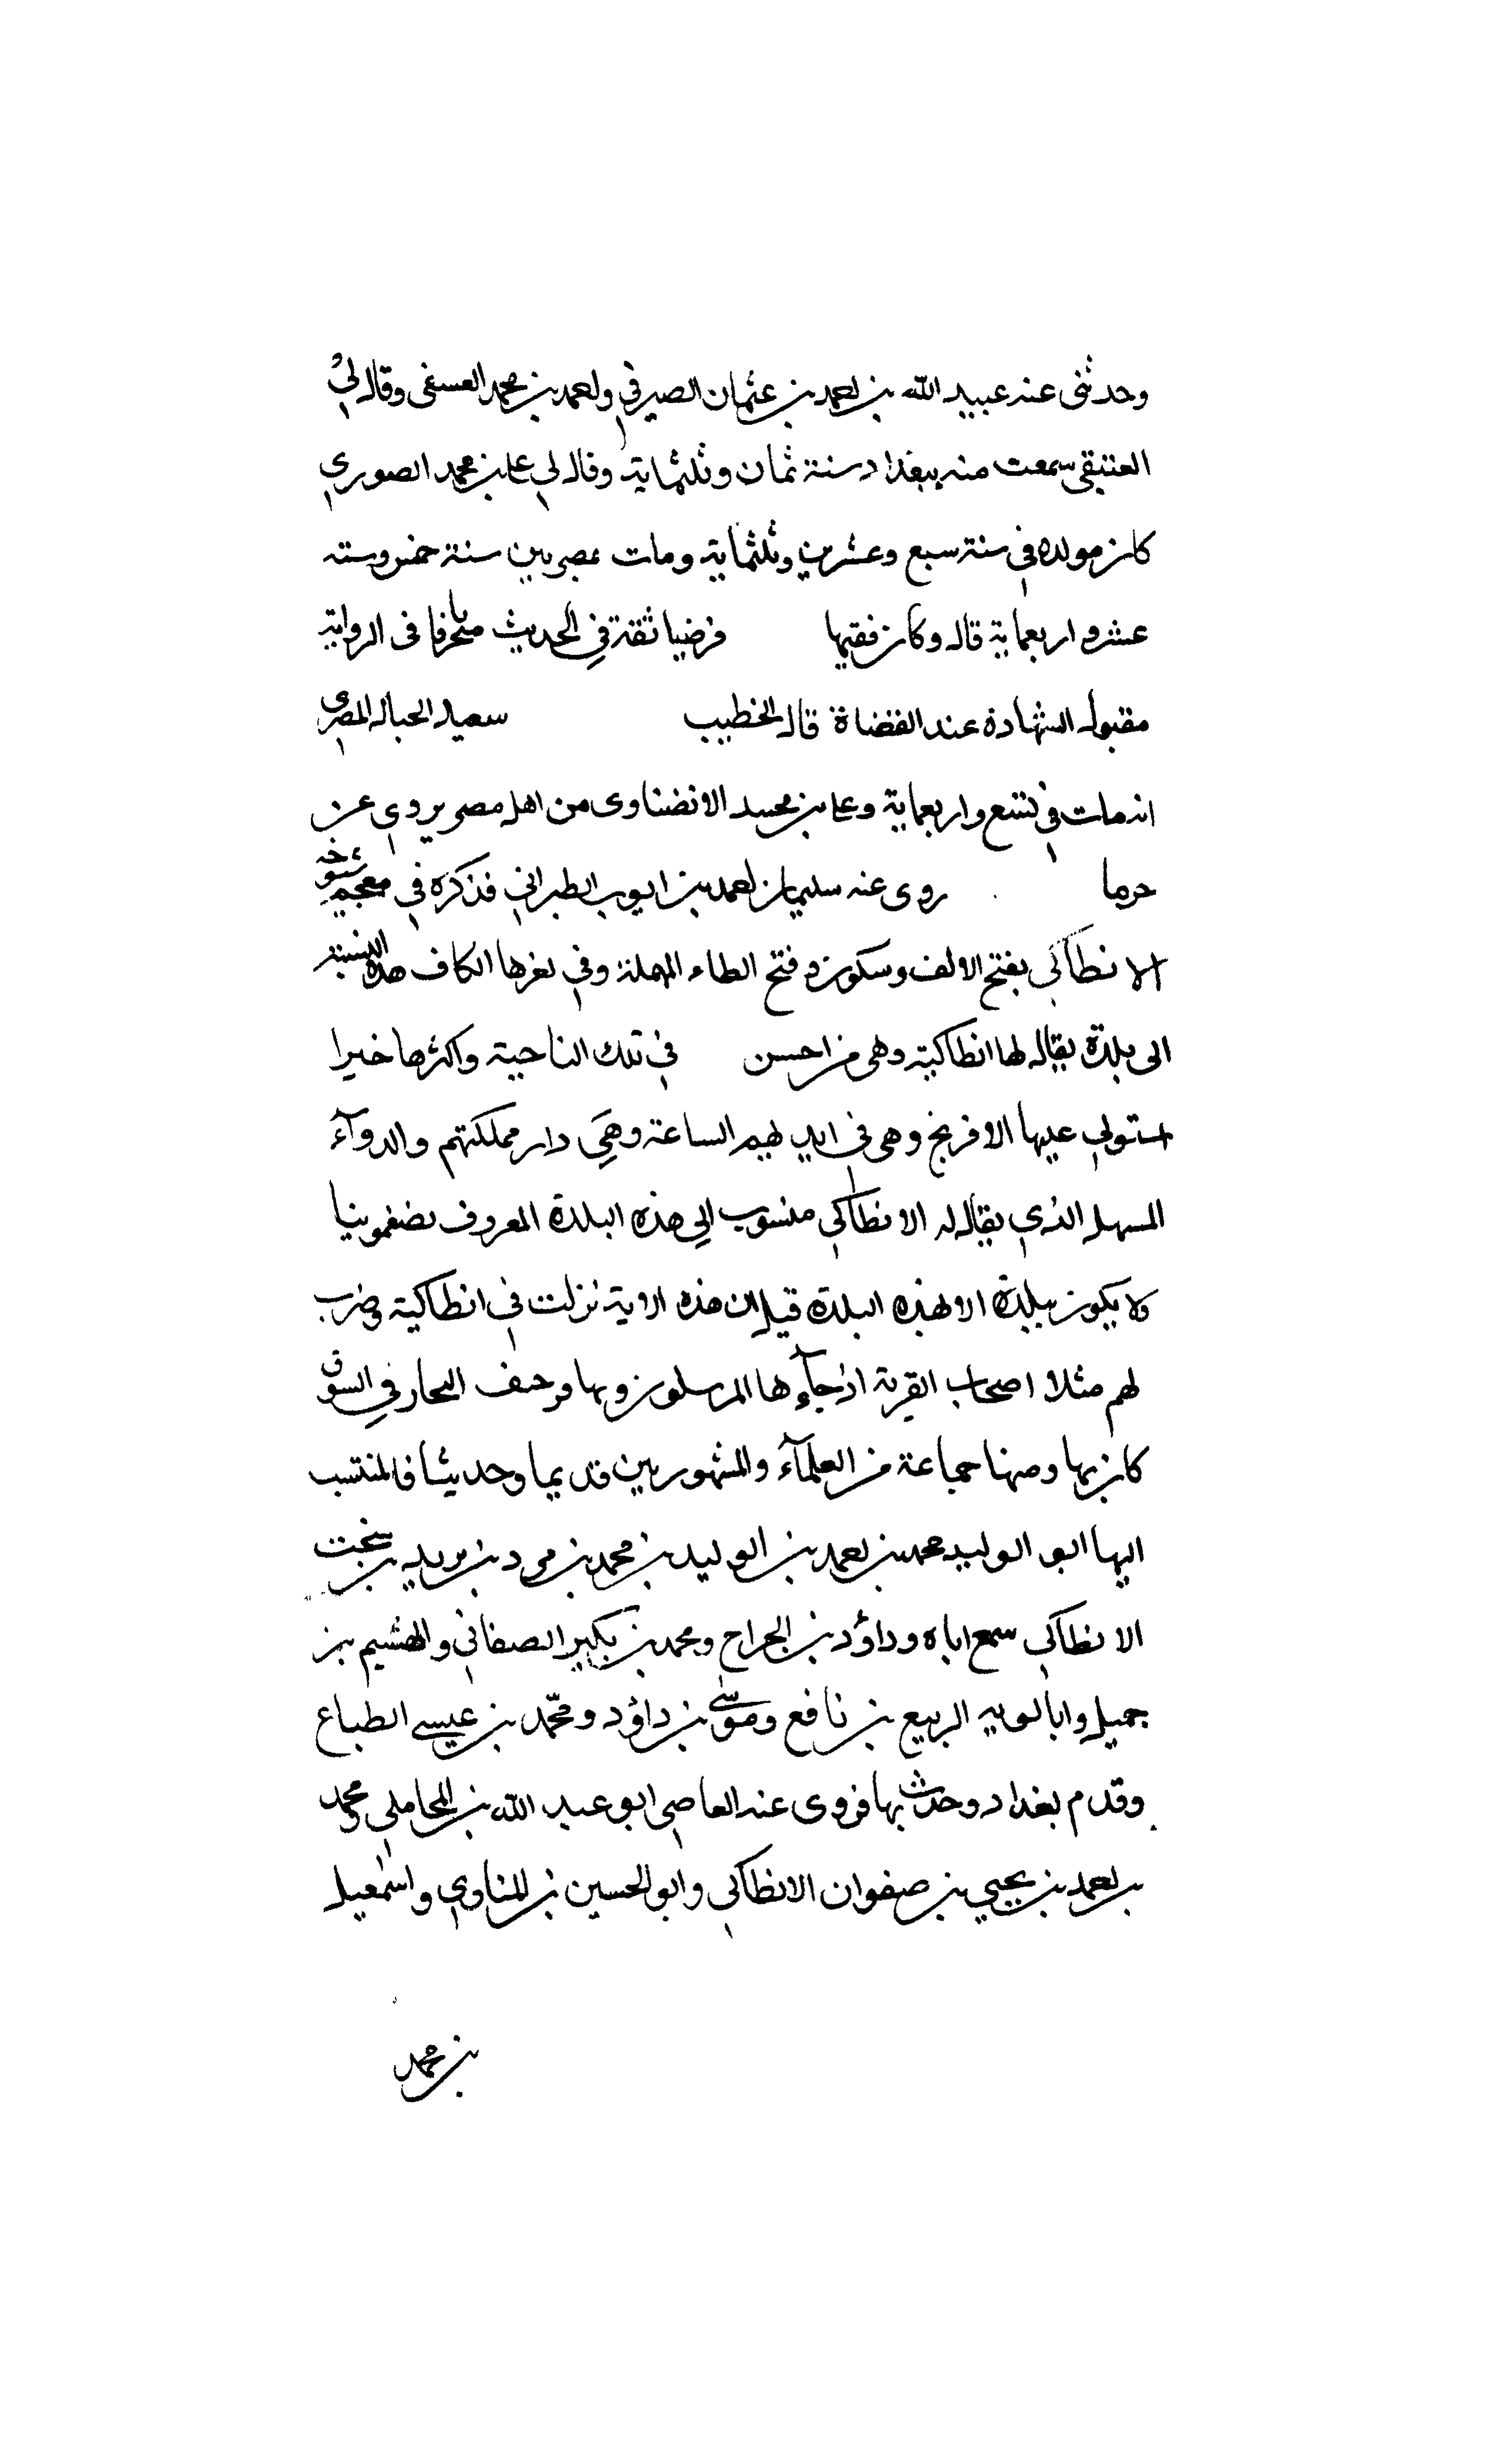 وحدثنى عنه عبيد الله بن احمد بن عثمان الصيرفي واحمد بن محمد العسقى وقال لي
العتيقى سمعت منه ببغداد سنة ثمان وثلثماية وقال لي على بن محمد الصوري
كان مولده في سنة سبع وعشرين وثلثماية ومات بمصر بين سنة خمس وسته
عشر واربعماية قال وكان فقيها فرضيا ثقة في الحديث متحرفا فى الرواية
مقبول الشهادة عند القضاة قال الخطيب سعيد الحبال المصرى
انه مات في تسع واربعماية وعلى بن محمد الانضناوى من اهل مصر يروي عن
حرما روى عنه سليمان احمد بن ايوب الطبراني فذكره في معجم شيوخه
الانطاكي بفتح الالف وسكون وفتح الطاء المهملة وفي اخرها الكاف هذه النسبة
الى بلدة يقال لها انطاكية وهى من احسن في تلك الناحية واكثرها خيرا
استولي عليها الافرنج وهى في ايديهم الساعة وهي دار مملكتهم والدوآء
المسهل الذي يقال له الانطاكي منسوب الي هذه البلدة المعروف بضغمونيا
ولا يكون ببلدة الا بهذه البلدة قيل ان هذه الاية نزلت في انطاكية وضرب
لهم مثلا اصحاب القرية اذ جآءها المرسلون وبها النجار في السوق
كان بها ومنها جماعة من العلمآء والمشهورين قديما وحديثا فالمنتسب
اليها ابو الوليد محمد بن احمد بن الوليد بن محمد بن برد بن يزيد بن سخت
الانطاكي سمع اباه وداؤد بن الجراح ومحمد بن بكير الصغاني والهشيم بن
جميل وابا توبه الربيع بن نافع وموسى بن داؤد ومحمد بن عيسى الطباع
وقدم بغداد وحدث بها فروى عنه القاصي ابو عبد الله بن المحاملي ومحمد
بن احمد بن يحيي بن صفوان الانطاكي وابو الحسين بن المناوي واسمعيل
بن محمد